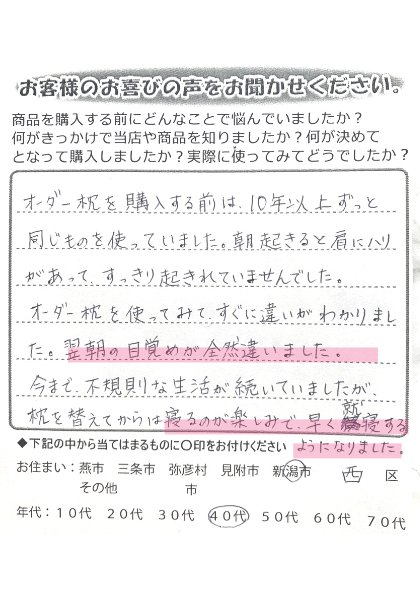 お客様のお喜びの声をお聞かせください。
商品を購入する前にどんなことで悩んでいましたか？
何がきっかけで当店や商品を知りましたか？何が決めて
となって購入しましたか？実際に使ってみてどうでしたか？
オーダー枕を購入する前は、10年以上ずっと
同じものを使っていました。朝起きると肩にハリ
があって、すっきり起きれていませんでした。
オーダー枕を使ってみて、すぐに違いがわかりまし
た。翌朝の目覚めが全然違いました。
今まで、不規則な生活が続いていましたが、
枕を替えてからは寝るのが楽しみで、早く就寝する
ようになりました。
◆下記の中から当てはまるものに○印をお付けください
お住まい：燕市 三条市 弥彦村 見附市 新潟市 西 区
その他 市
年代：１０代 ２０代 ３０代 ４０代 ５０代 ６０代 ７０代